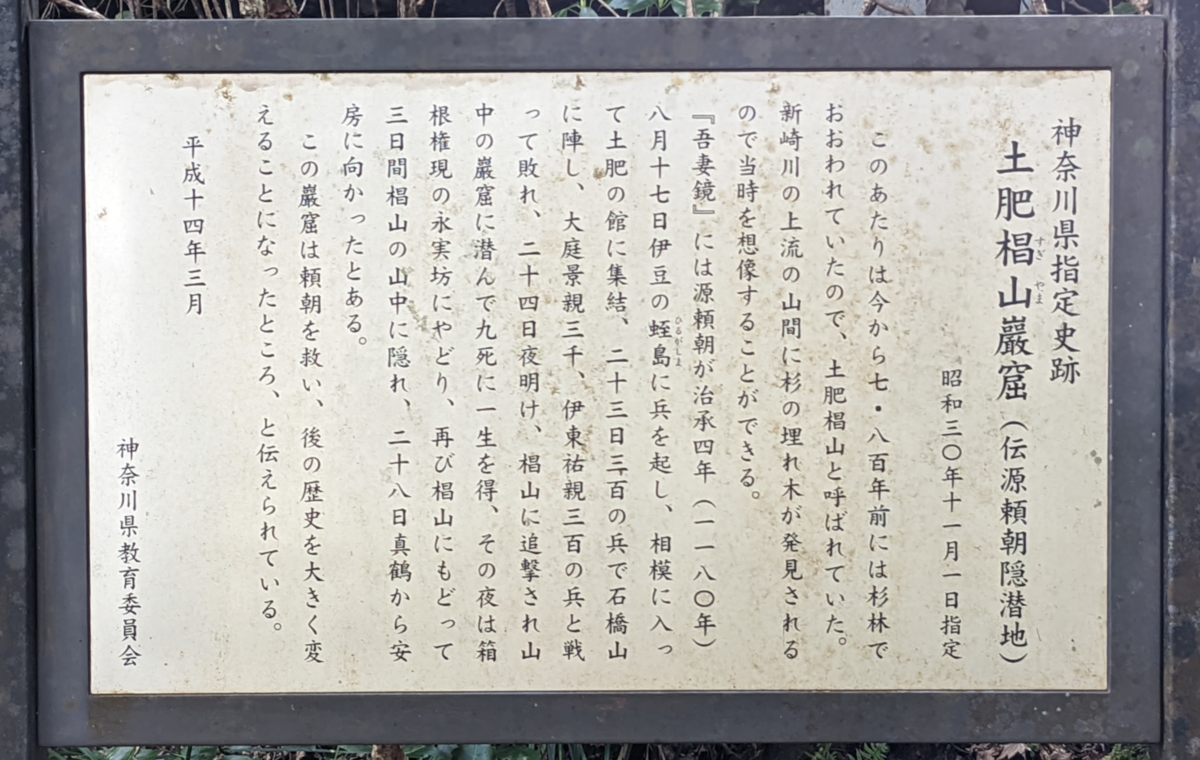 神奈川県指定史跡
土肥椙山巖窟(伝源頼朝隠潜地)
すぎ やま
昭和三〇年十一月一日指定
このあたりは今から七・八百年前には杉林で
おおわれていたので、土肥椙山と呼ばれていた。
新崎川の上流の山間に杉の埋れ木が発見される
ので当時を想像することができる。
『吾妻鏡』には源頼朝が治承四年(一一八〇年)
八月十七日伊豆の蛭島に兵を起し、相模に入っ
ひるがしま
て土肥の館に集結、二十三日三百の兵で石橋山
に陣し、大庭景親三千、伊東祐親三百の兵と戦
って敗れ、二十四日夜明け、椙山に追撃され山
中の巖窟に潜んで九死に一生を得、その夜は箱
根権現の永実坊にやどり、再び椙山にもどって
三日間椙山の山中に隠れ、二十八日真鶴から安
房に向かったとある。
この巖窟は頼朝を救い、後の歴史を大きく変
えることになったところ、と伝えられている。
平成十四年三月
神奈川県教育委員会